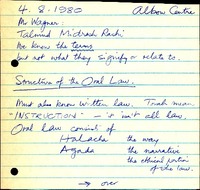 4.8.1980 Albon Centre
Mr Wagner:
Talmud Midrash Rashi
We know the terms
but not what they signify or relate to.
Structure of the Oral Law.
Must also know written law. Torah means
"INSTRUCTION" - it isn't all law.
Oral law consists of
Halacha the way
Agada the narrative
the ethical portion
of the law.
→ over